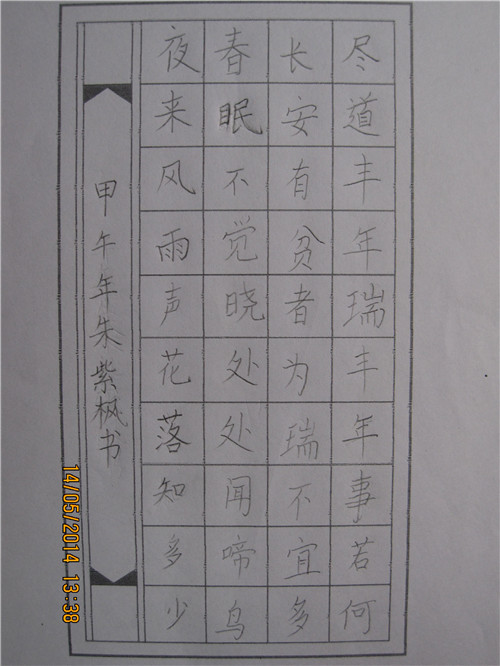 尽道丰年瑞丰年事若何
长安有贫者为瑞不宜多
春眠不觉晓处处闻啼鸟
夜来风雨声花落知多少
甲午年朱紫枫书
14/05/2014 13:38